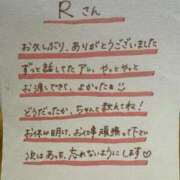 Rさん
お久しぶり、ありがとうございました
ずっと話してたアレ、やっとやっと
お渡しできて、よかったぁ♡
どうだったか、ちゃんと教えてね!
お休み明け、お仕事頑張って下さい
次はあっち、忘れないようにします♡